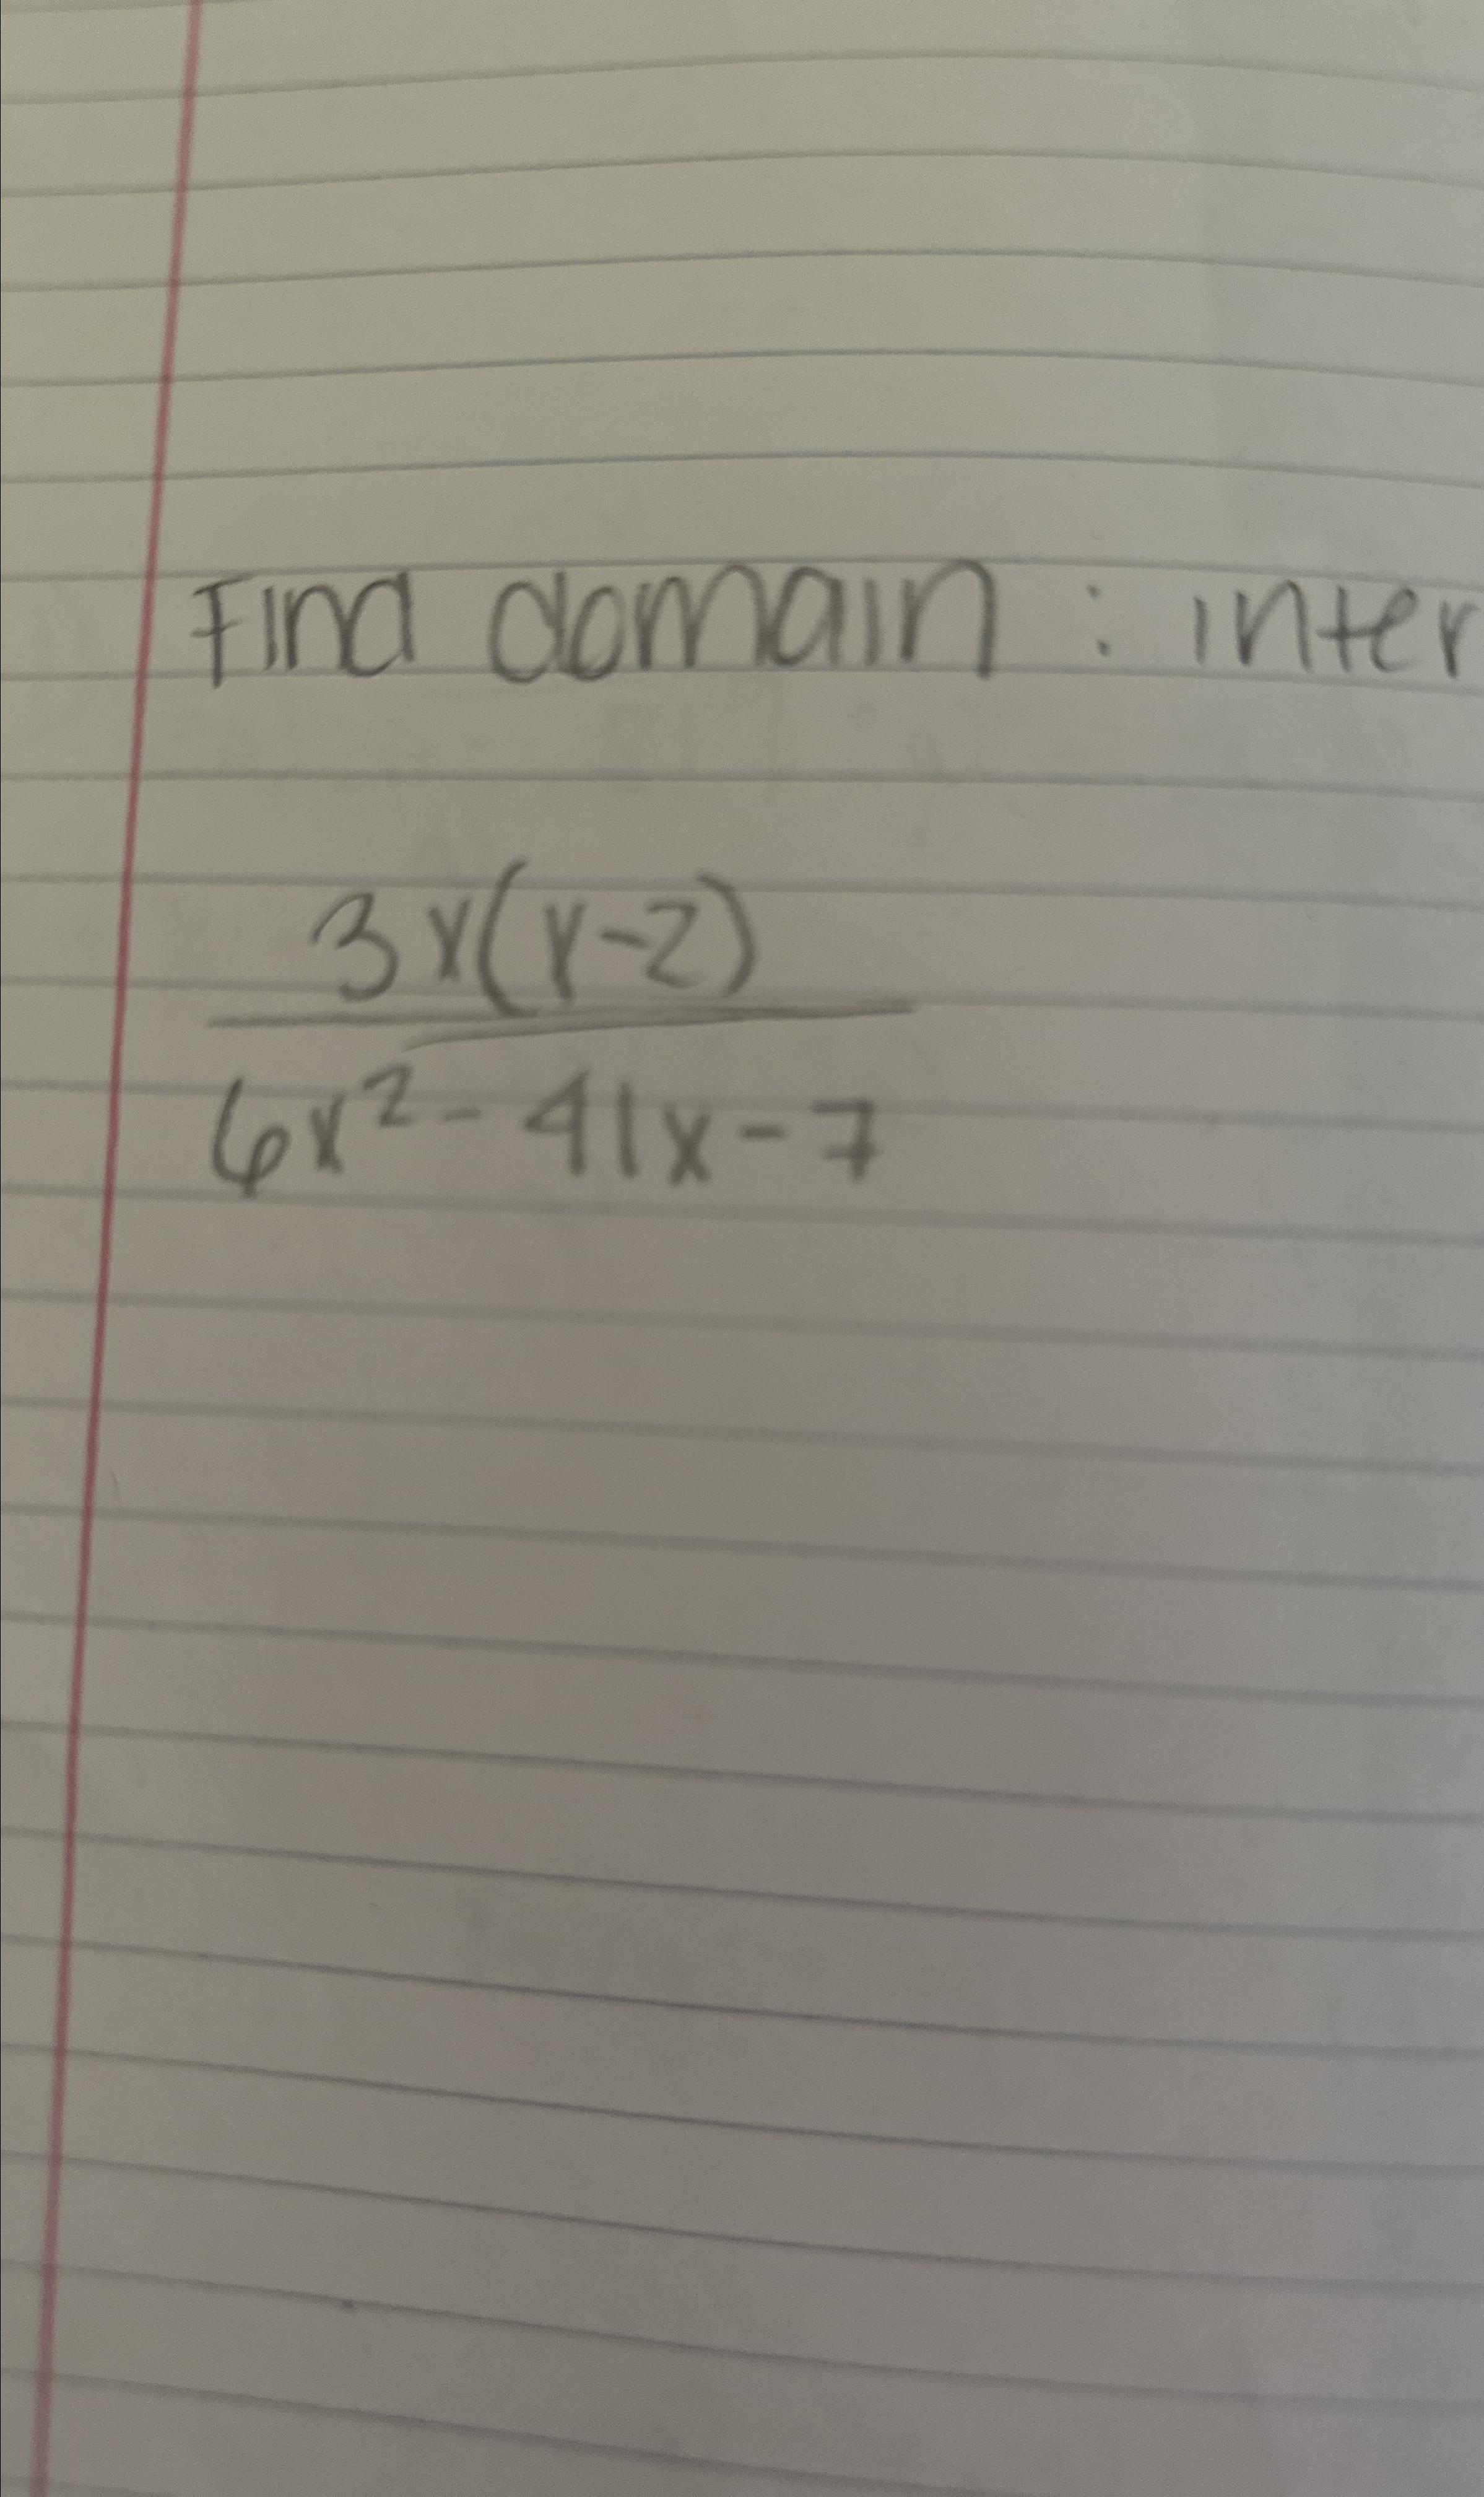 Find domain : inter
3x(x-2)
6x² - 41x - 7